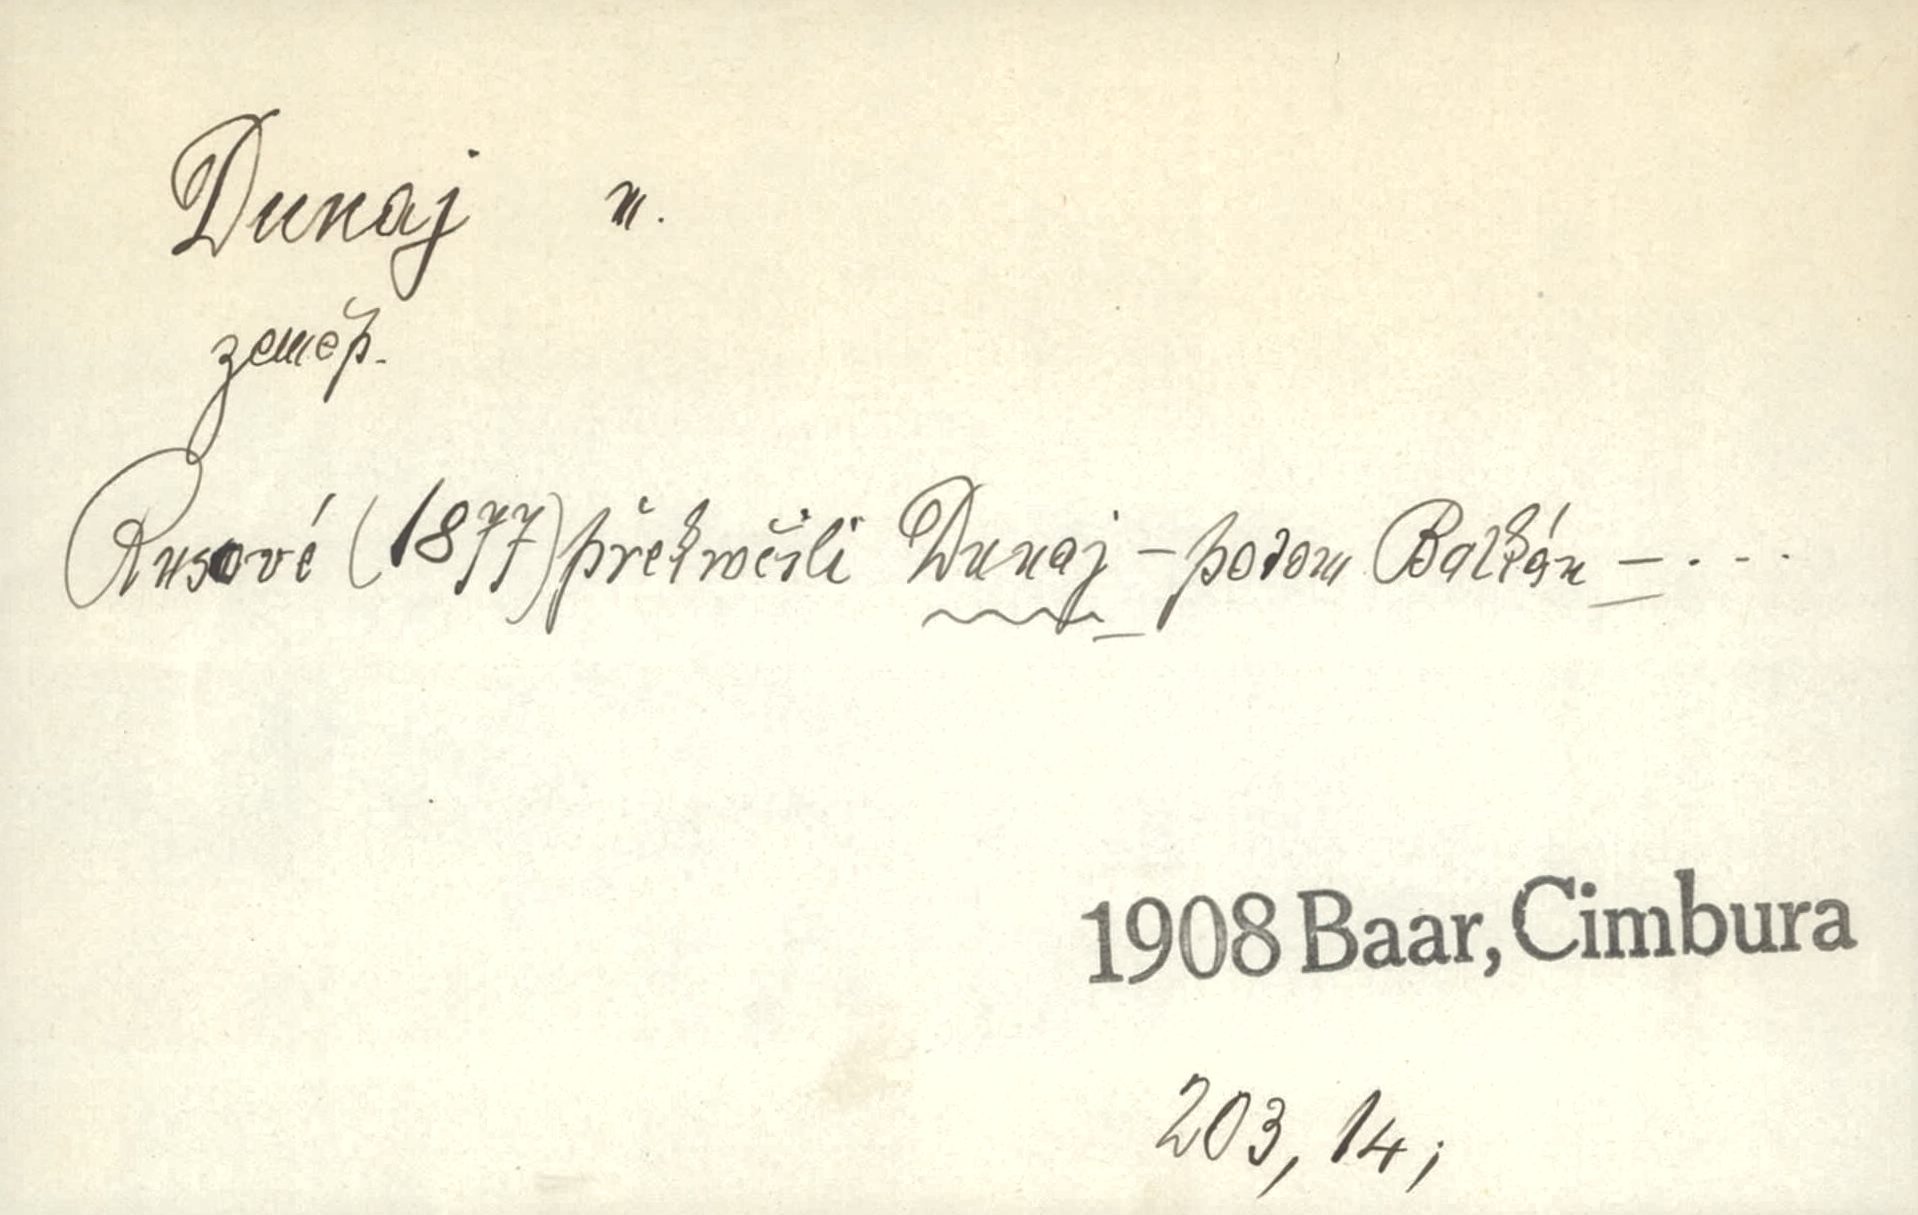 Dunaj m.
zeměp.
Rusové (1877) překročili Dunaj – potom Balkán – . . . .
1908 Baar, Cimbura
203, 14;